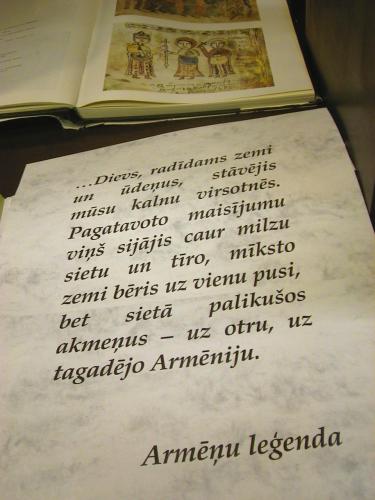 ...Dievs, radīdams zemi
un ūdeņus, stāvējis
mūsu kalnu virsotnēs.
Pagatavoto maisījumu
viņš sijājis caur milzu
sietu un tīro, mīksto
zemi bēris uz vienu pusi,
bet sietā palikušos
akmeņus – uz otru, uz
tagadējo Armēniju.
Armēņu leģenda